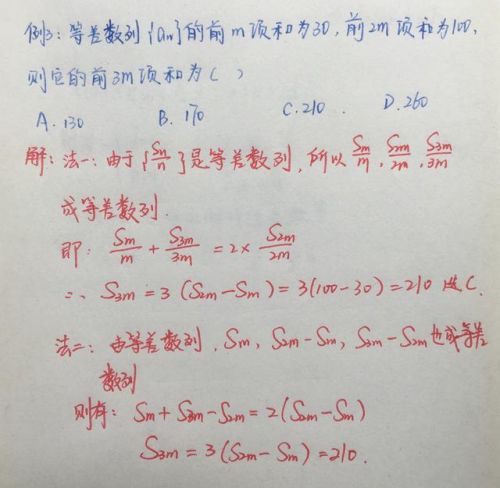 例3：等差数列{an}的前m项和为30，前2m项和为100，
则它的前3m项和为（ ）
A. 130 B. 170 C. 210. D. 260
解：法一：由于{Sn/n}是等差数列，所以Sm/m，S2m/2m，S3m/3m
成等差数列.
即：Sm/m + S3m/3m = 2×S2m/2m
∴ S3m = 3(S2m-Sm) = 3(100-30) = 210 选C.
法二：由等差数列，Sm，S2m-Sm，S3m-S2m也成等差
数列
则有：Sm+S3m-S2m = 2(S2m-Sm)
S3m = 3(S2m-Sm) = 210.